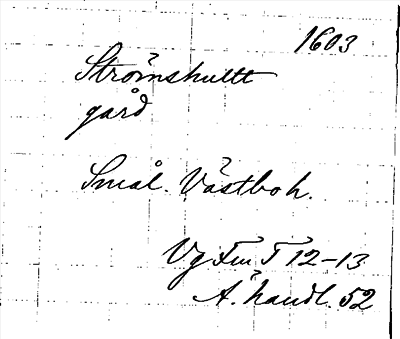 1603
Strömshultt
gård
Smål. Västboh.
Vg Fm T 12-13
Ä. handl. 52